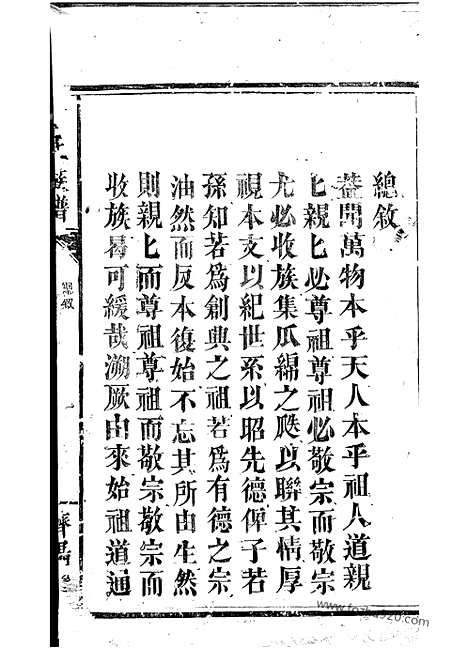 總敘
蓋聞萬物本乎天人本乎祖人道親
匕親匕必尊祖尊祖必敬宗而敬宗
尤必收族集瓜綿之瓞以聯其情厚
視本支以紀世系以昭先德俾子若
孫知若為創典之祖若為有德之宗
油然而反本復始不忘其所由生然
則親匕而尊祖尊祖而敬宗敬宗而
收族曷可緩哉溯厥由來始祖道通
族譜
總敘